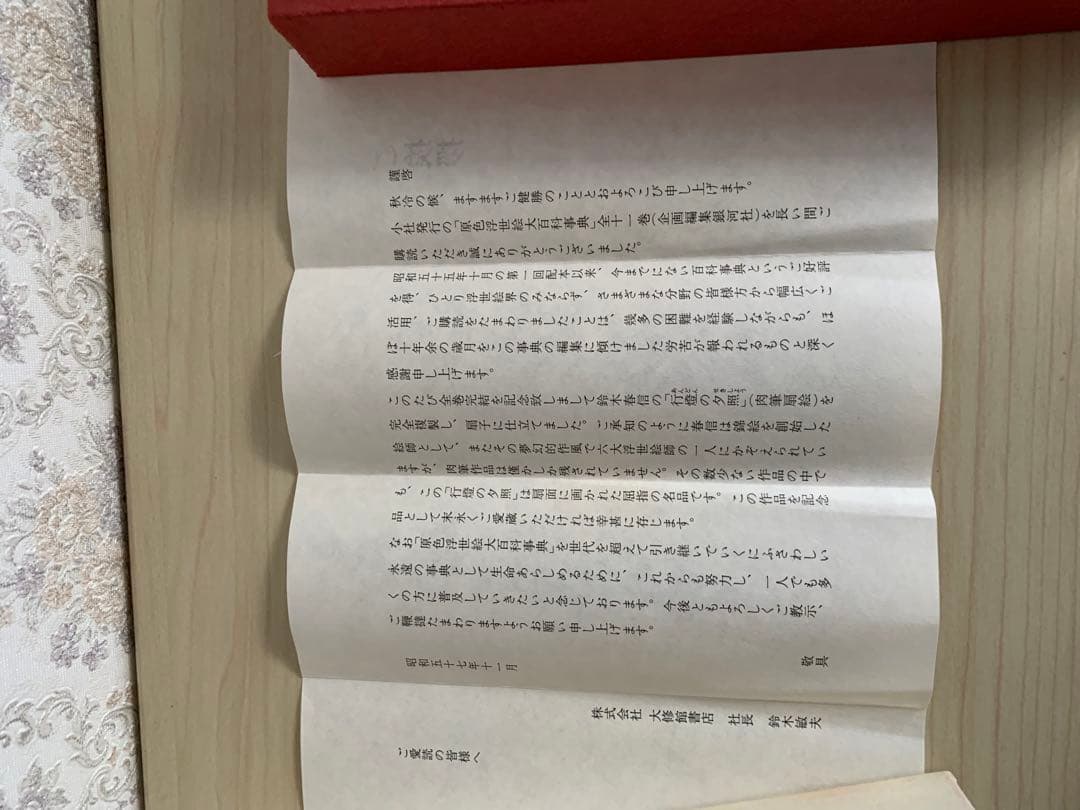 謹啓
秋冷の候、ますますご健勝のこととおよろこび申し上げます。
小社発行の「原色浮世絵大百科事典」全十一巻(企画編集銀河社)を長い間ご
購読いただき誠にありがとうございました。
昭和五十五年十月の第一回配本以来、今までにない百科事典というご好評
を得、ひとり浮世絵界のみならず、さまざまな分野の皆様方から幅広くご
活用、ご購読をたまわりましたことは、幾多の困難を経験しながらも、ほ
ぼ十年余の歳月をこの事典の編集に傾けました労苦が報われるものと深く
感謝申し上げます。
このたび全巻完結を記念致しまして鈴木春信の「行燈の夕照」(肉筆扇絵)を
完全複製し、扇子に仕立てました。ご承知のように春信は錦絵を創始した
絵師として、またその夢幻的作風で六大浮世絵師の一人にかぞえられてい
ますが、肉筆作品は僅かしか残されていません。その数少ない作品の中で
も、この「行燈の夕照」は扇面に画かれた屈指の名品です。この作品を記念
品として末永くご愛蔵いただければ幸甚に存じます。
なお「原色浮世絵大百科事典」を世代を超えて引き継いでいくにふさわしい
永遠の事典として生命あらしめるために、これからも努力し、一人でも多
くの方に普及していきたいと念じております。今後ともよろしくご教示、
ご鞭撻たまわりますようお願い申し上げます。
敬具
昭和五十七年十一月
株式会社 大修館書店 社長 鈴木敏夫
ご愛読の皆様へ